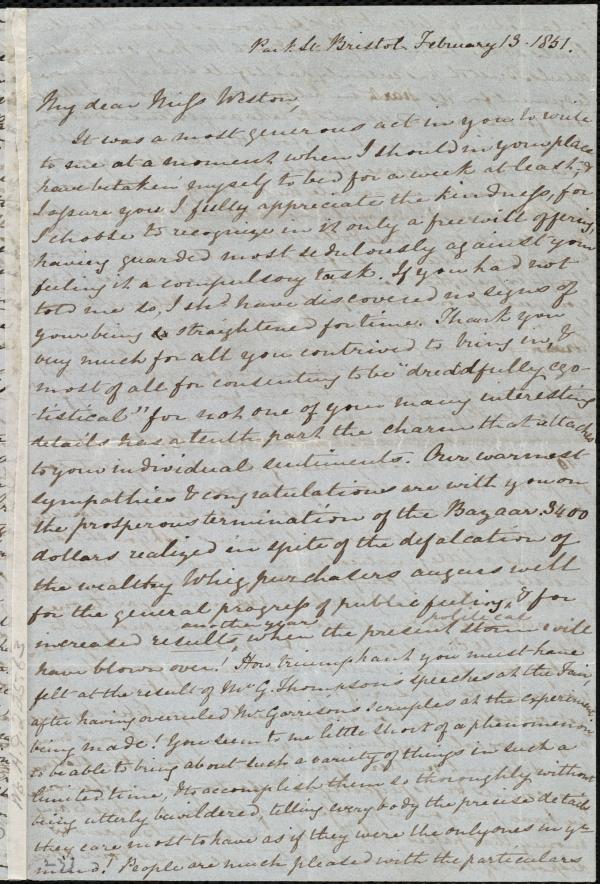 Park St. Bristol February 13. 1851.
My dear Miss Weston,
It was a most generous act in you to write
to me at a moment when I should in your place
have betaken myself to bed for a week at least, &
I assure you I fully appreciate the kindness, for
I choose to recognize in it only a freewill offering,
having guarded most sedulously against your
feeling it a compulsory task. If you had not
told me so, I shd have discovered no signs of
your being straightened for time. Thank you
very much for all you contrived to bring in, &
most of all for consenting to be "dreddfully ego-
tistical" for not one of your many interesting
details has a tenth part the charm that attaches
to your individual sentiments. Our warmest
sympathies & congratulations are with you on
the prosperous termination of the Bazaar. 3400
dollars realized in spite of the defalcation of
the wealthy Whig purchasers augurs well
for the general progress of public feeling, & for
increased results another year when the present political storm will
have blown over! How triumphant you must have
felt at the result of Mr G. Thompson's speeches at the Fair,
after having overruled Mr Garrison's scruples at the experiment
being made! You seem to me little short of a phenomenon
to be able to bring about such a variety of things in such a
limited time, & to accomplish them so thoroughly without
being utterly bewildered, telling everybody the precise details
they care most to have as if they were the only ones in yr
mind! People are much pleased with the particulars